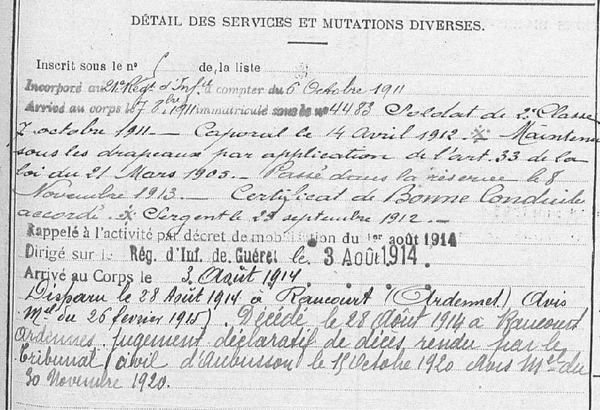 DÉTAIL DES SERVICES ET MUTATIONS DIVERSES.
Inscrit sous le n° de la liste
Incorporé au 21e Régt d'Infie à compter du 6 Octobre 1911
Arrivé au corps le 7 8bre 1911 immatriculé sous le no 4483 Soldat de 2e Classe
7 octobre 1911._ Caporal le 14 Avril 1912._ x Maintenu
sous les drapeaux par application de l'art. 33 de la
loi du 21 Mars 1905._ Passé dans la réserve le 8
Novembre 1913._ Certificat de Bonne Conduite
accordé. x Sergent le 29 septembre 1912._
Rappelé à l'activité par décret de mobilisation du 1er août 1914
Dirigé sur le Rég. d'Inf. de Guéret le 3 Août 1914.
Arrivé au Corps le 3 Août 1914.
Disparu le 28 Août 1914 à Raucourt (Ardennes) Avis
Mel du 26 février 1915). Décédé le 28 Août 1914 à Raucourt
Ardennes. Jugement déclaratif de décès rendu par le
Tribunal civil d'Aubusson le 15 Octobre 1920 Avis Mel du
30 Novembre 1920.